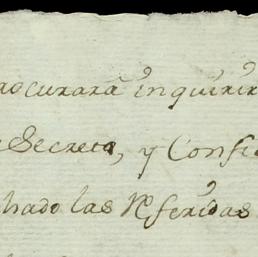 procurará inquirir
Secreto, y Confi
hado las Referidas